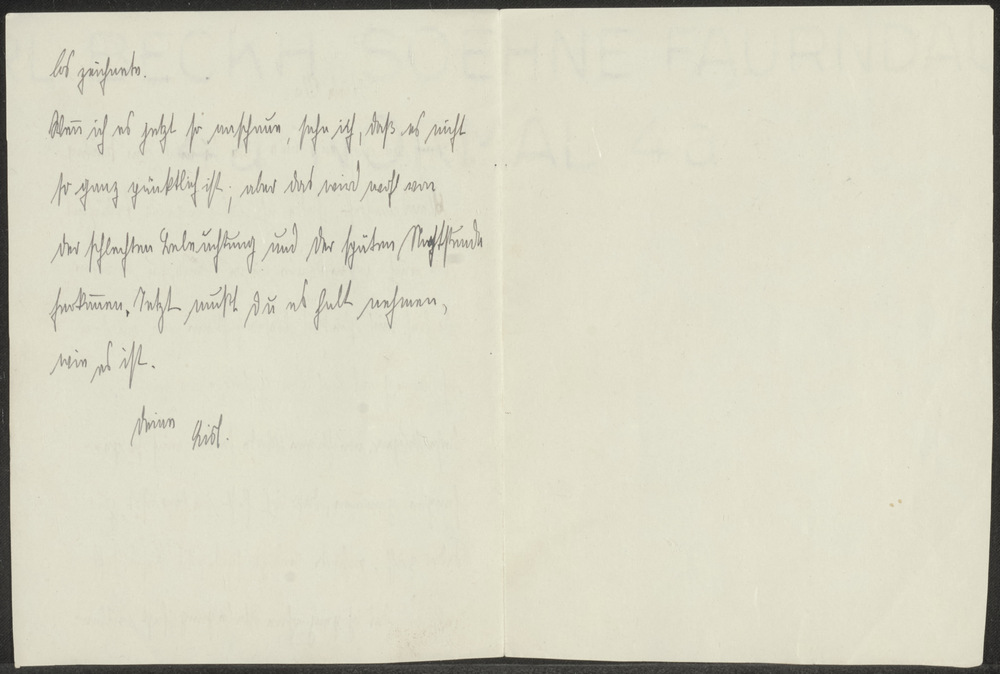 los zeichnete.
Wenn ich es jetzt so anschaue, sehe ich, daß es nicht
so ganz pünktlich ist, aber das wird wohl von
der schlechten Beleuchtung und der späten Nachtstunde
herkommen. Jetzt mußt Du es halt nehmen,
wie es ist.
Deine Lisl.